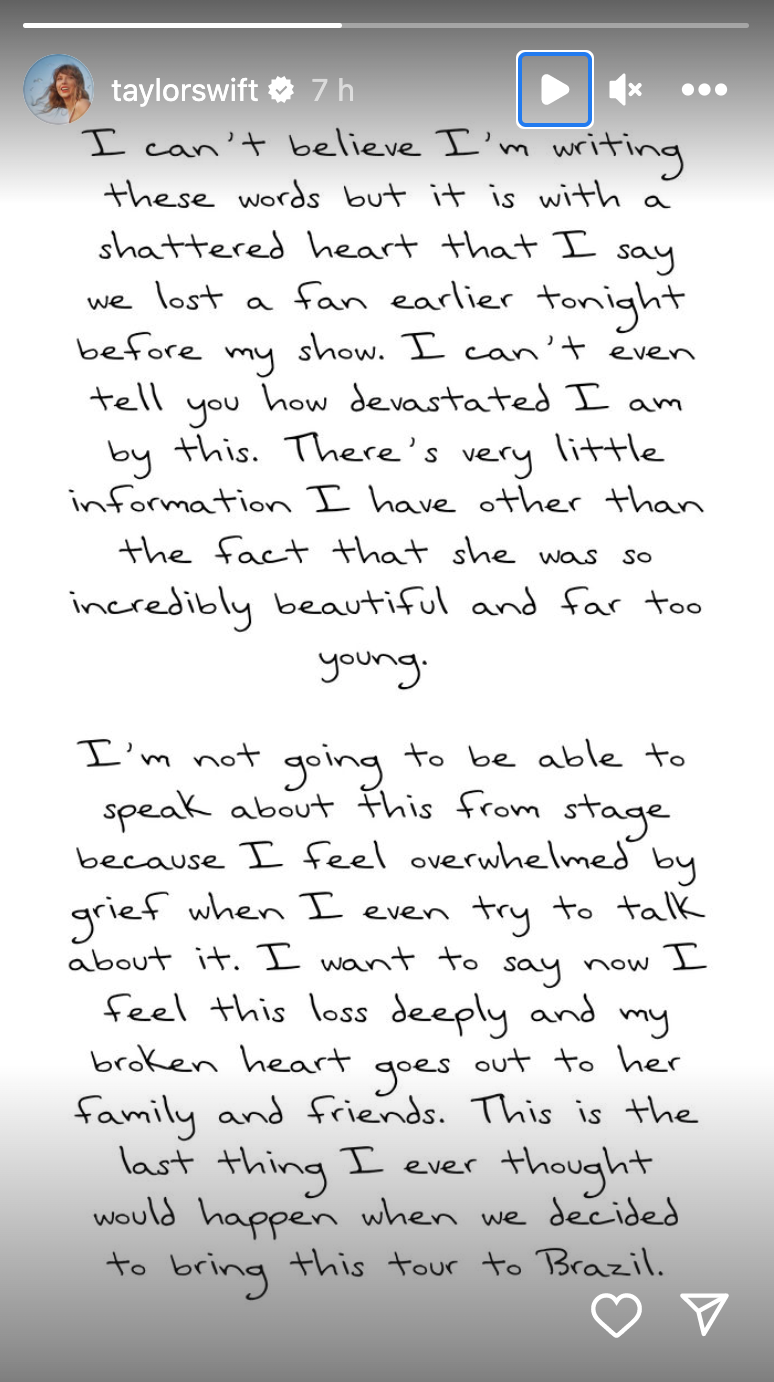 taylorswift 7 h
I can't believe I'm writing
these words but it is with a
shattered heart that I say
we lost a fan earlier tonight
before my show. I can't even
tell you how devastated I am
by this. There's very little
information I have other than
the fact that she was so
incredibly beautiful and far too
young.
I'm not going to be able to
speak about this from stage
because I feel overwhelmed by
grief when I even try to talk
about it. I want to say now I
feel this loss deeply and my
broken heart goes out to her
family and friends. This is the
last thing I ever thought
would happen when we decided
to bring this tour to Brazil.